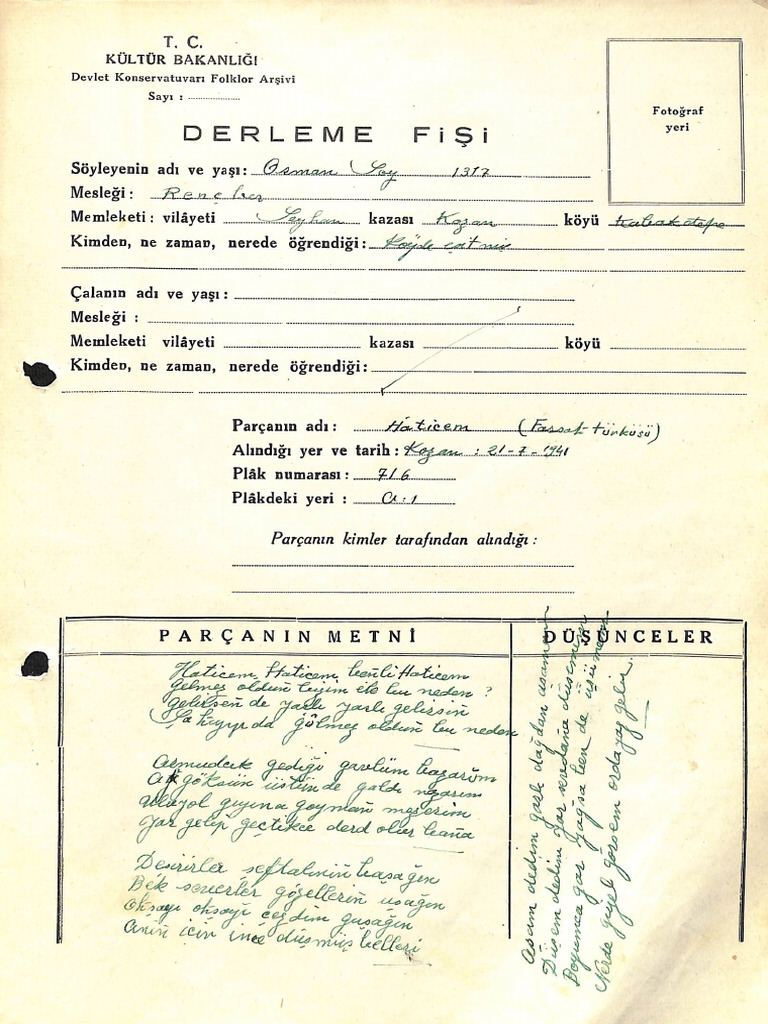 T. C.
KÜLTÜR BAKANLIĞI
Devlet Konservatuvarı Folklor Arşivi
Sayı :
Fotoğraf
yeri
DERLEME FİŞİ
Söyleyenin adı ve yaşı: Osman Soy 1317
Mesleği: Rençber
Memleketi: vilâyeti Seyhan kazası Kozan köyü Kabaktepe
Kimden, ne zaman, nerede öğrendiği: Köyde çatmış
Çalanın adı ve yaşı:
Mesleği :
Memleketi vilâyeti kazası köyü
Kimden, ne zaman, nerede öğrendiği:
Parçanın adı: Haticem (Farsak türküsü)
Alındığı yer ve tarih: Kozan : 21-7-1941
Plâk numarası: 716
Plâkdeki yeri : a:1
Parçanın kimler tarafından alındığı:
PARÇANIN METNİ
DÜŞÜNCELER
Haticem, Haticem benli Haticem
Gelmez olduñ beyim ile bu neden ?
Gelirseñ de yarlı yarlı gelirsiñ
Şa köyde gölmez olduñ bu neden
Armudcuk gediği gavlüm bazarım
Ak göksüñ üstünde galdı nazarım
Uluyol gıyına goymañ mezerim
Yar gelip geçtikce derd olur bana
Deşirirler şeftaliniñ başağın
Bek severler gözellerin uşağın
Okşayı okşayı çezdim guşağın
Anıñ için ince düşmüş belleri
Aşsım dedim garlı dağdan aşaman
Düşem dedim yar sevdaña düşemem
Boyumca gar yağsa ben de üşümem
Nerde güzel görsem orda yaz gelir